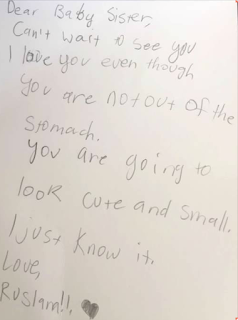 Dear Baby Sister,
Can't wait to see you
I love you even though
you are not out of the
stomach.
you are going to
look cute and small.
I just know it.
Love,
Ruslam!!,